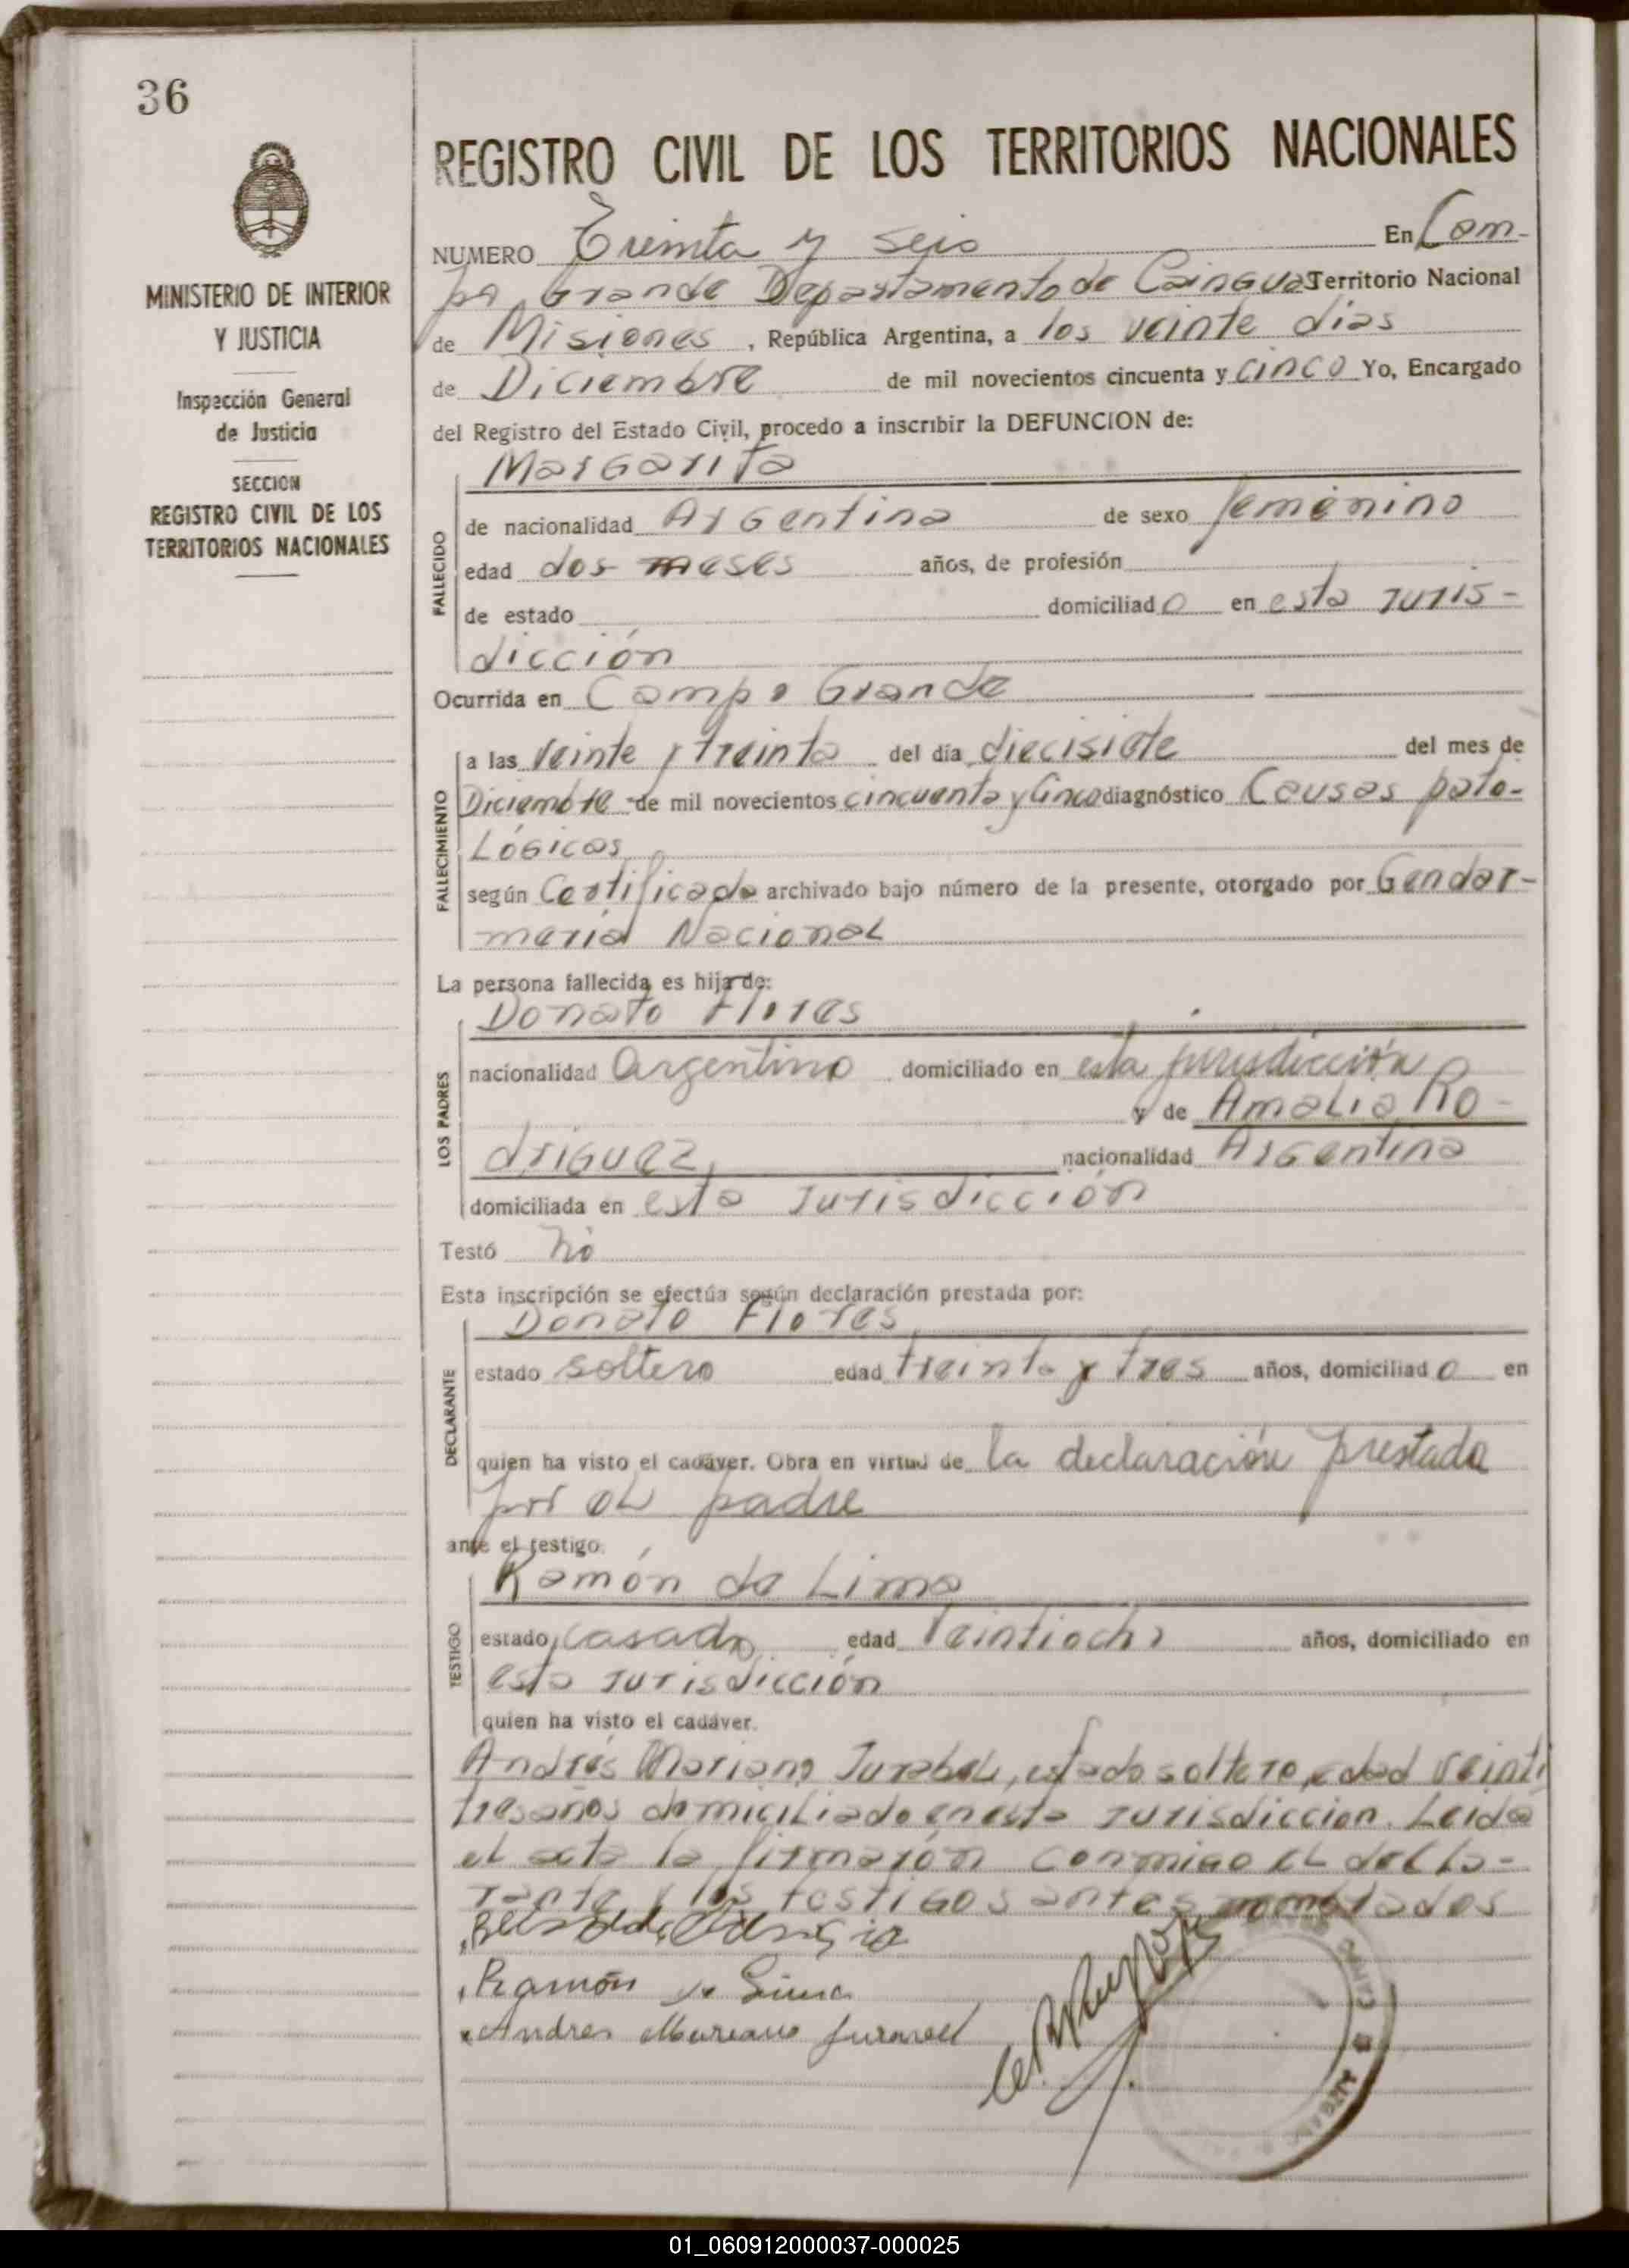 36
MINISTERIO DE INTERIOR
Y JUSTICIA
Inspección General
de Justicia
SECCION
REGISTRO CIVIL DE LOS
TERRITORIOS NACIONALES
REGISTRO CIVIL DE LOS TERRITORIOS NACIONALES
NUMERO Treinta y seis En Cam-
po Grande Departamento de Cainguas Territorio Nacional
de Misiones, República Argentina, a los veinte dias
de Diciembre de mil novecientos cincuenta y cinco Yo, Encargado
del Registro del Estado Civil, procedo a inscribir la DEFUNCION de:
Margarita
FALLECIDO
de nacionalidad Argentina de sexo femenino
edad dos meses años, de profesión
de estado domiciliado en esta juris-
dicción
Ocurrida en Campo Grande
FALLECIMIENTO
a las veinte y treinta del día diecisiete del mes de
Diciembre de mil novecientos cincuenta y cinco diagnóstico Causas pato-
Lógicas
según Certificado archivado bajo número de la presente, otorgado por Gendar-
meria Nacional
La persona fallecida es hija de:
LOS PADRES
Donato Flores
nacionalidad argentino domiciliado en esta jurisdicción
y de Amalia Ro-
driguez nacionalidad Argentina
domiciliada en esta Jurisdicción
Testó no
Esta inscripción se efectúa según declaración prestada por:
DECLARANTE
Donato Flores
estado soltero edad treinta y tres años, domiciliado en
quien ha visto el cadáver. Obra en virtud de la declaración prestada
por el padre
ante el testigo
TESTIGO
Ramón de Lima
estado casado edad Veintiocho años, domiciliado en
esta Jurisdicción
quien ha visto el cadáver.
Andrés Mariano, estado soltero, edad veinti
tres años domiciliado en esta Jurisdiccion. Leida
el acta la firmarón conmigo el decla-
rante y los testigos antes nombrados
Ramón de Lima
Andres Mariano
01_060912000037-000025